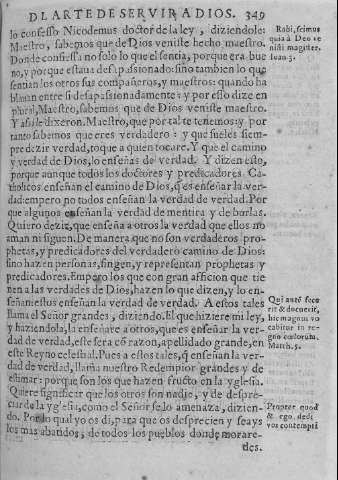 DL ARTE DE SERVIR A DIOS. 349
lo confesso Nicodemus doctor de la ley, diziendole:
Maestro, sabemos que de Dios veniste hecho maestro.
Donde confiessa no solo lo que el sentia, porque era bue
no, y por que estaua desapasionado: sino tambien lo que
sentian los otros sus compañeros, y maestros: quando ha
blauan entre si desapasionadamente: y por esso dize en
plural, Maestro, sabemos que de Dios veniste maestro.
Y assi le dixeron. Maestro, que por tal te tenemos: y por
tanto sabemos que eres verdadero: y que sueles siem
pre dezir verdad, toque a quien tocare. Y que el camino
y verdad de Dios, lo enseñas de verdad. Y dizen esto,
porque aunque todos los doctores y predicadores Ca
tholicos enseñan el camino de Dios, q̃ es enseñar la ver-
dad: empero no todos enseñan la verdad de verdad. Por
que algunos enseñan la verdad de mentira y de burlas.
Quiero dezir, que enseña a otros la verdad que ellos no
aman ni siguen. De manera que no son verdaderos pro-
phetas, y predicadores del verdadero camino de Dios:
sino hazen personas, fingen, y representan prophetas y
predicadores. Empero los que con gran afficion que tie
nen a las verdades de Dios, hazen lo que dizen, y lo en-
señan: estos enseñan la verdad de verdad. A estos tales
llama el Señor grandes, diziendo. El que hiziere mi ley,
y haziendola, la enseñare a otros, que es enseñar la ver-
dad de verdad, este sera cõ razon, apellidado grande, en
este Reyno celestial. Pues a estos tales, q̃ enseñan la ver
dad de verdad, llama nuestro Redemptor grandes y de
estimar: porque son los que hazen fructo en la yglesia.
Quiere significar que los otros son nadie, y de despre-
ciar de la yglesia, como el Señor se lo amenaza, dizien-
do. Por lo qual yo os di, para que os desprecien y seays
los mas abatidos, de todos los pueblos donde morare-
des.
Rabi, scimus
quia à Deo ve
nisti magister.
Ioan. 3.
Qui autẽ fece
rit & docuerit,
hic magnus vo
cabitur in re-
gno cœlorum.
Matth. 5.
Propter quod
& ego dedi
vos contempti